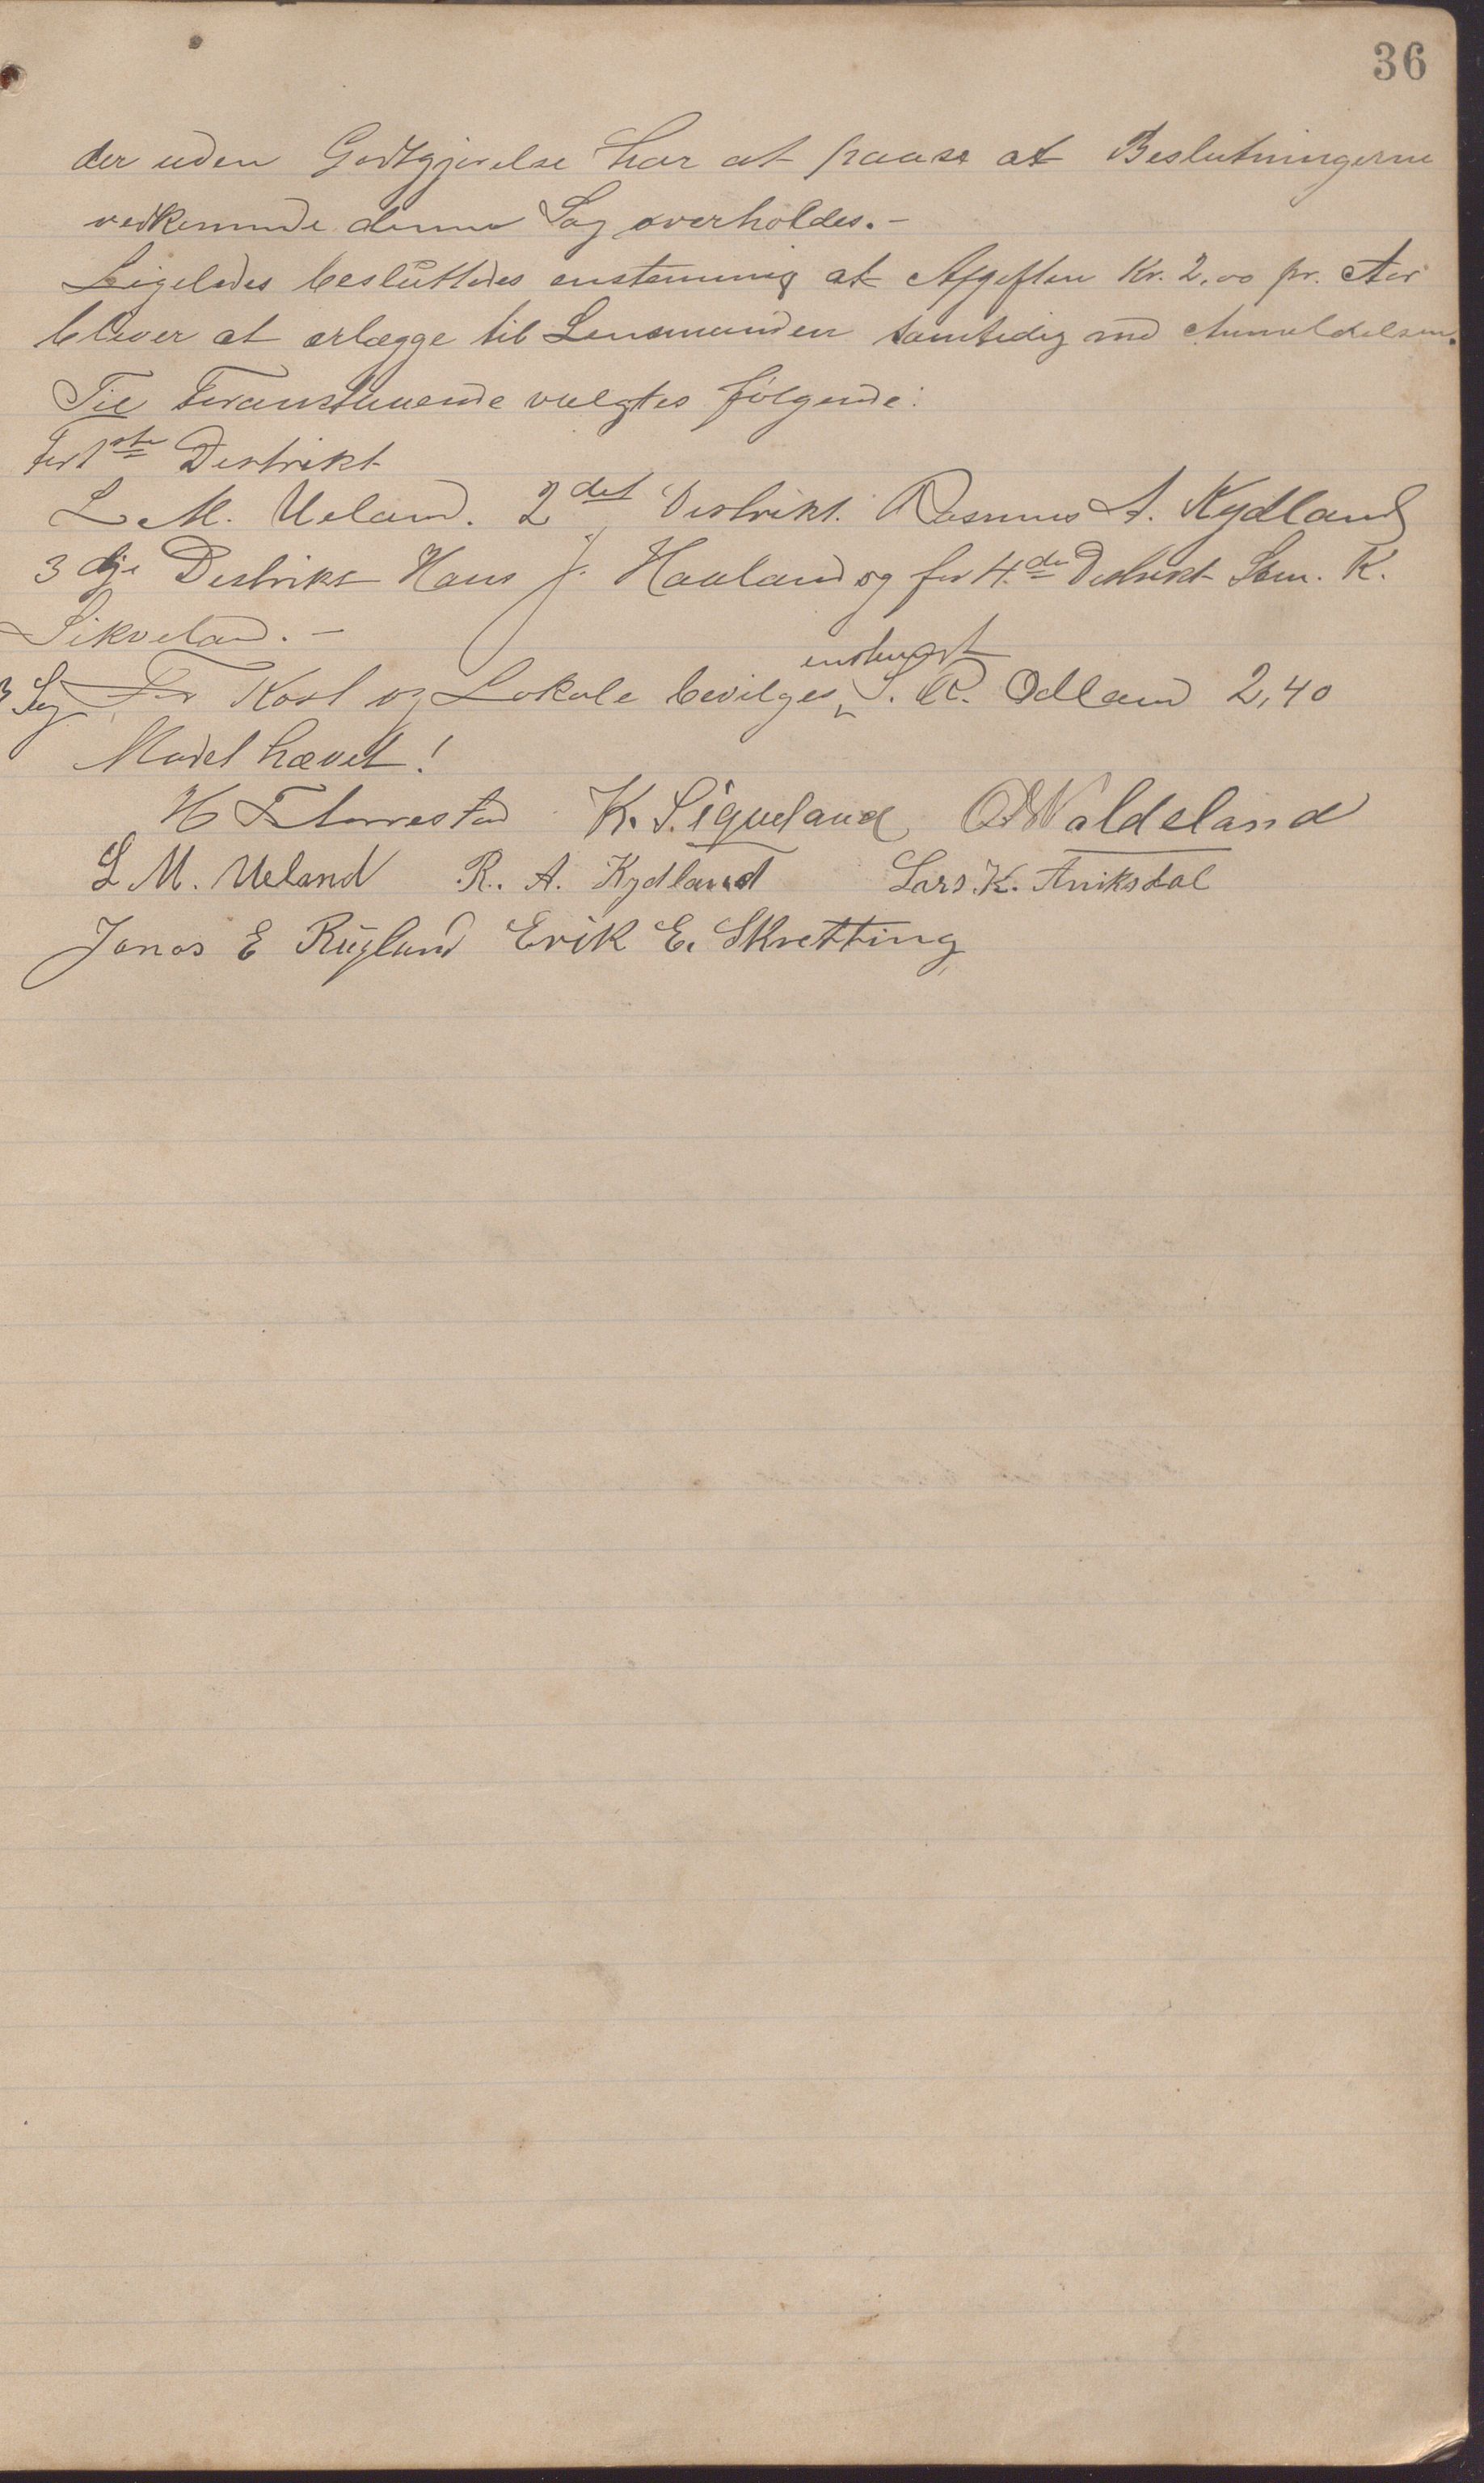 36
der uden Godtgjørelse har at paase at Beslutningerne
vedkommende denne Sag overholdes.-
Ligeledes besluttedes enstemmig at Afgiften Kr. 2,00 pr. Aar
bliver at erlægge til Lensmanden samtidig med Anmeldelsen.
Til Foranstaaende valgtes følgende:
For 1ste Destrikt
L. M. Ueland. 2det Destrikt. Rasmus A. Kydland
3dje Destrikt Hans J. Haaland og for 4.de Destrikt Sem. K.
Sikveland. -
enstemt
3 Sag For Kost og Lokale bevilges S. R. Odland 2,40
Mødet hævet!
K. Sigveland O Valdeland
L M. Ueland R. A. Kydland Lars. K. Aniksdal
Jonas E Rugland Erik E. Skretting